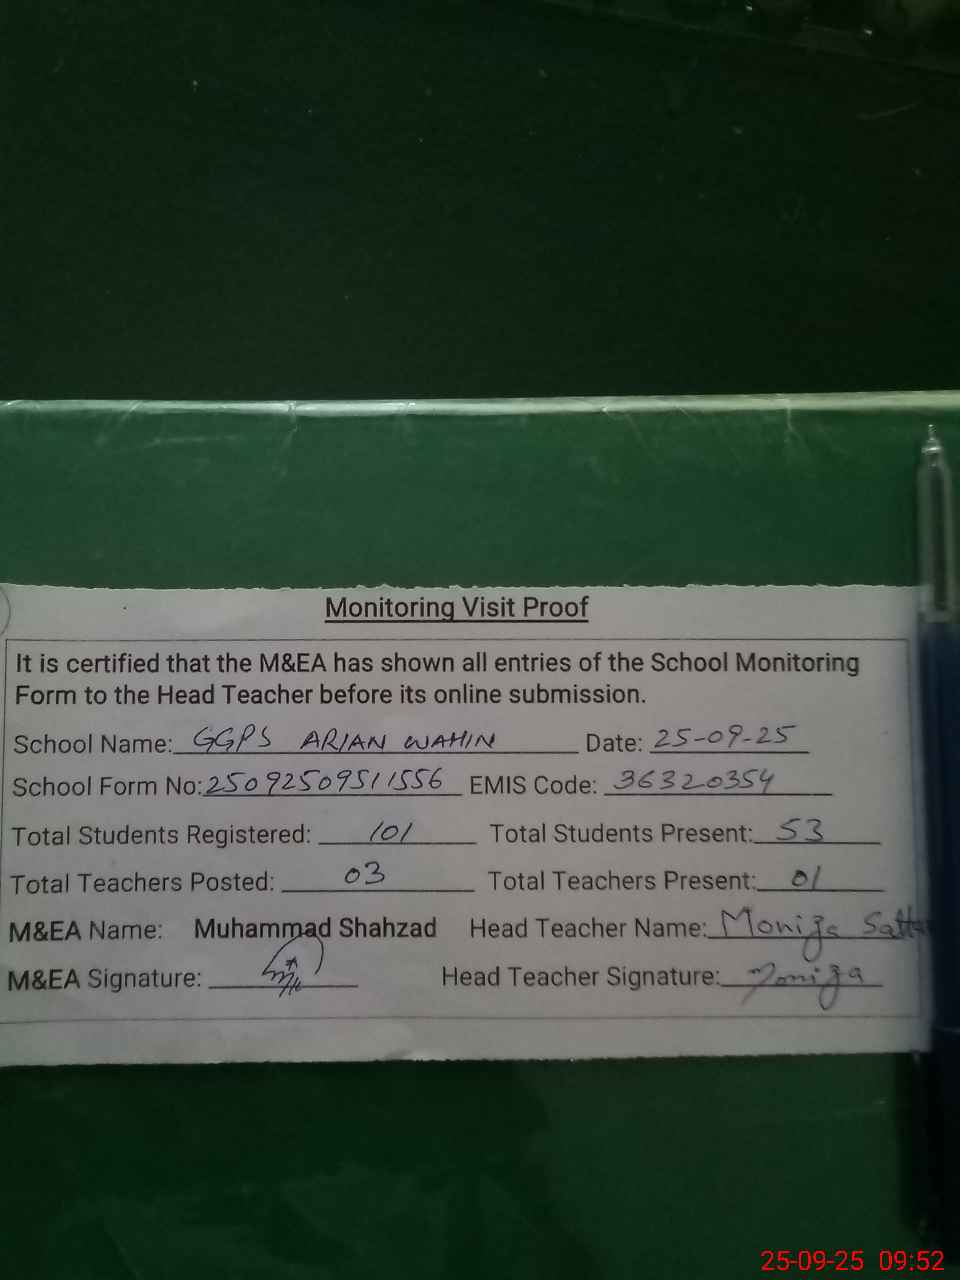 Monitoring Visit Proof
It is certified that the M&EA has shown all entries of the School Monitoring
Form to the Head Teacher before its online submission.
School Name: GGPS ARIAN WAHIN Date: 25-09-25
School Form No: 25092509511556 EMIS Code: 36320354
Total Students Registered: 101 Total Students Present: 53
Total Teachers Posted: 03 Total Teachers Present: 01
M&EA Name: Muhammad Shahzad Head Teacher Name: Moniza
M&EA Signature: Head Teacher Signature: Moniza
25-09-25 09:52